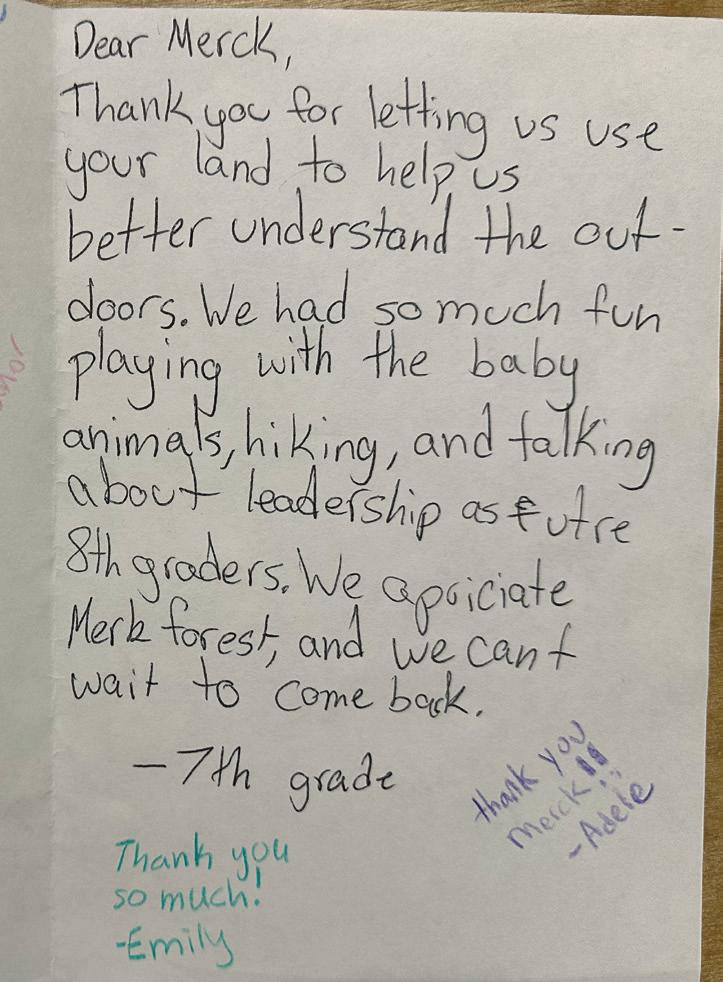 Dear Merck,
Thank you for letting us use
your land to help us
better understand the out-
doors. We had so much fun
playing with the baby
animals, hiking, and talking
about leadership as futre
8th graders. We apriciate
Merk forest, and we cant
wait to come back.
-7th grade
thank you
merck!!!
-Adele
Thank you
so much!
-Emily